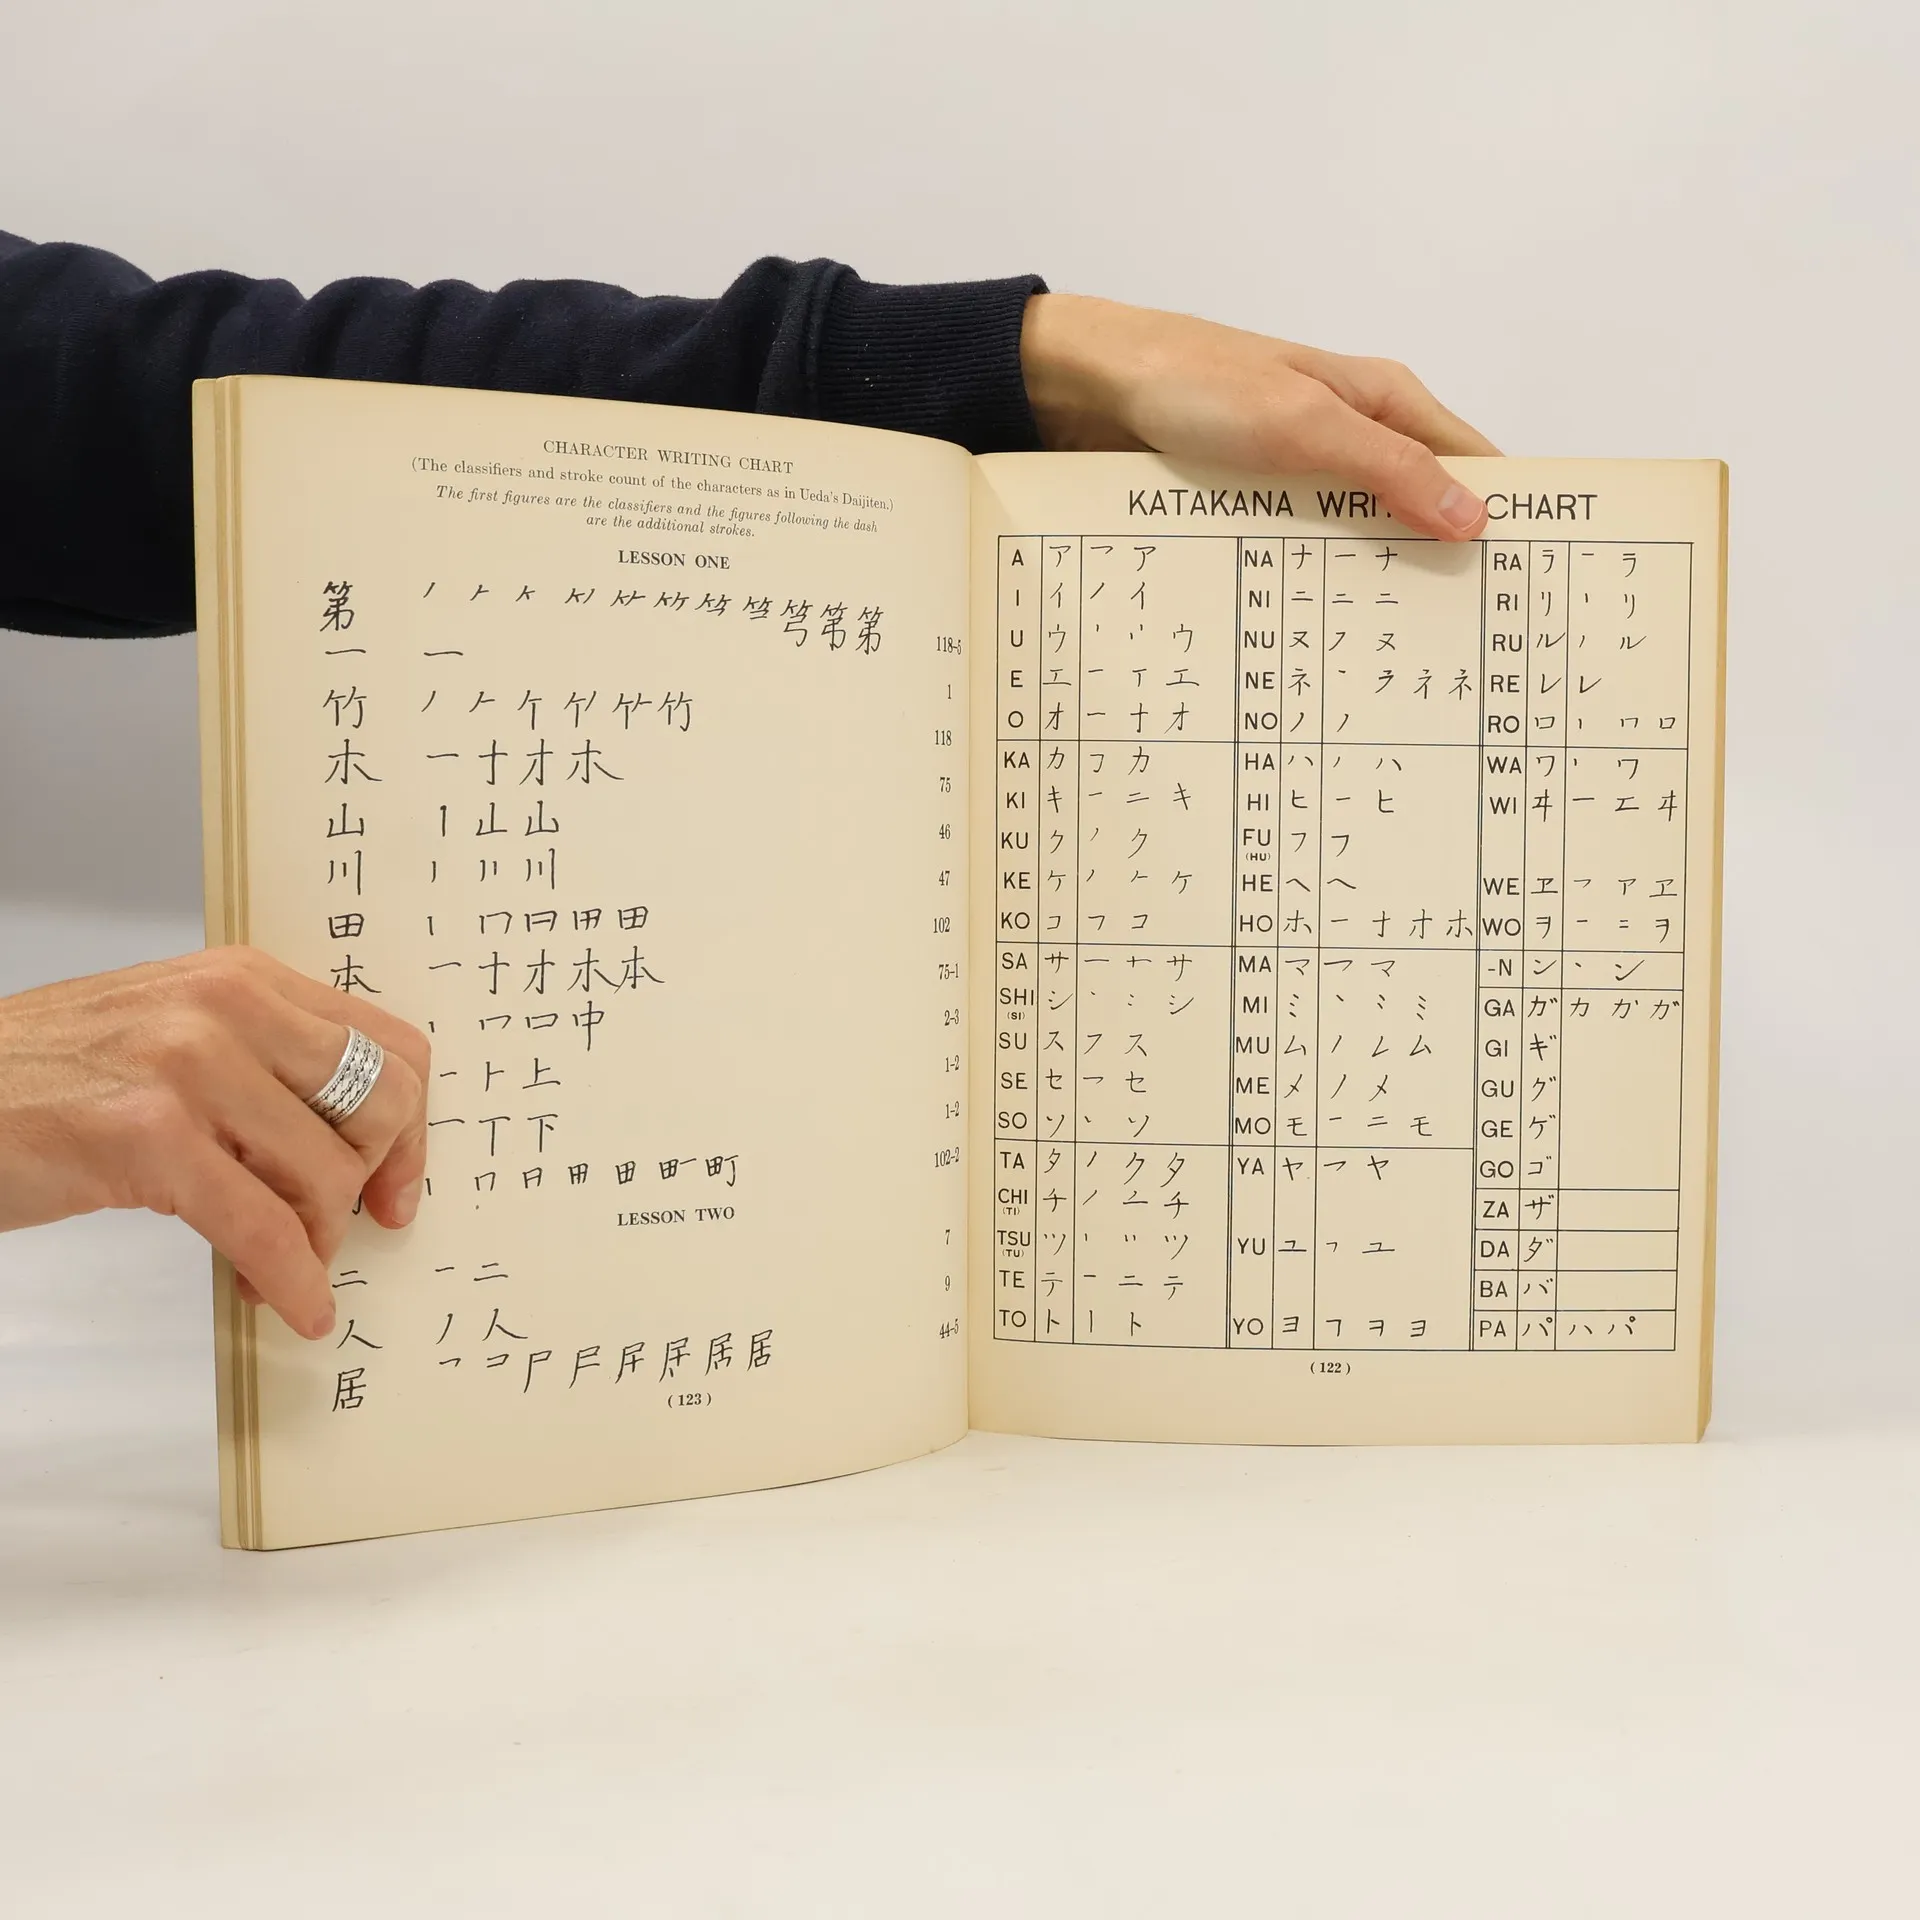 CHARACTER WRITING CHART
(The classifiers and stroke count of the characters as in Ueda's Daijiten.)
The first figures are the classifiers and the figures following the dash
are the additional strokes.
LESSON ONE
第 ノ 𠂉 第 118-5
一 一 1
竹 ノ 𠂉 竹 118
木 一 十 才 木 75
山 丨 山 46
川 川 47
田 丨 冂 田 102
本 一 十 才 木 本 75-1
丨 口 中 2-3
上 1-2
一 丅 下 1-2
丨 冂 日 田 町 102-2
LESSON TWO
二 一 二 7
人 ノ 人 9
居 コ 尸 居 44-5
(123)
KATAKANA WRI CHART
A ア フ ア NA ナ 一 ナ RA ラ 一 ラ
I イ ノ イ NI ニ 二 二 RI リ 丨 リ
U ウ ウ NU ヌ フ ヌ RU ル ノ ル
E エ 一 丅 エ NE ネ ネ RE レ レ
O オ 一 十 オ NO ノ ノ RO ロ 丨 冂 ロ
KA カ カ HA ハ ノ ハ WA ワ 丨 ワ
KI キ 一 二 キ HI ヒ 一 ヒ WI ヰ 一 エ ヰ
KU ク ノ ク FU (HU) フ フ
KE ケ ノ 𠂉 ケ HE ヘ ヘ WE ヱ フ ア ヱ
KO コ コ HO ホ 一 十 オ ホ WO ヲ 一 二 ヲ
SA サ 一 サ MA マ フ マ -N ン 丶 ン
SHI (SI) シ 丶 シ MI ミ 丶 ミ GA ガ カ ガ
SU ス フ ス MU ム ノ レ ム GI ギ
SE セ フ セ ME メ ノ メ GU グ
SO ソ 丶 ソ MO モ 一 二 モ GE ゲ
GO ゴ
TA タ ノ ク タ YA ヤ フ ヤ ZA ザ
CHI (TI) チ ノ チ
TSU (TU) ツ ツ YU ユ ユ DA ダ
TE テ 一 二 テ BA バ
TO ト 丨 ト YO ヨ ヨ PA パ ハ パ
(122)